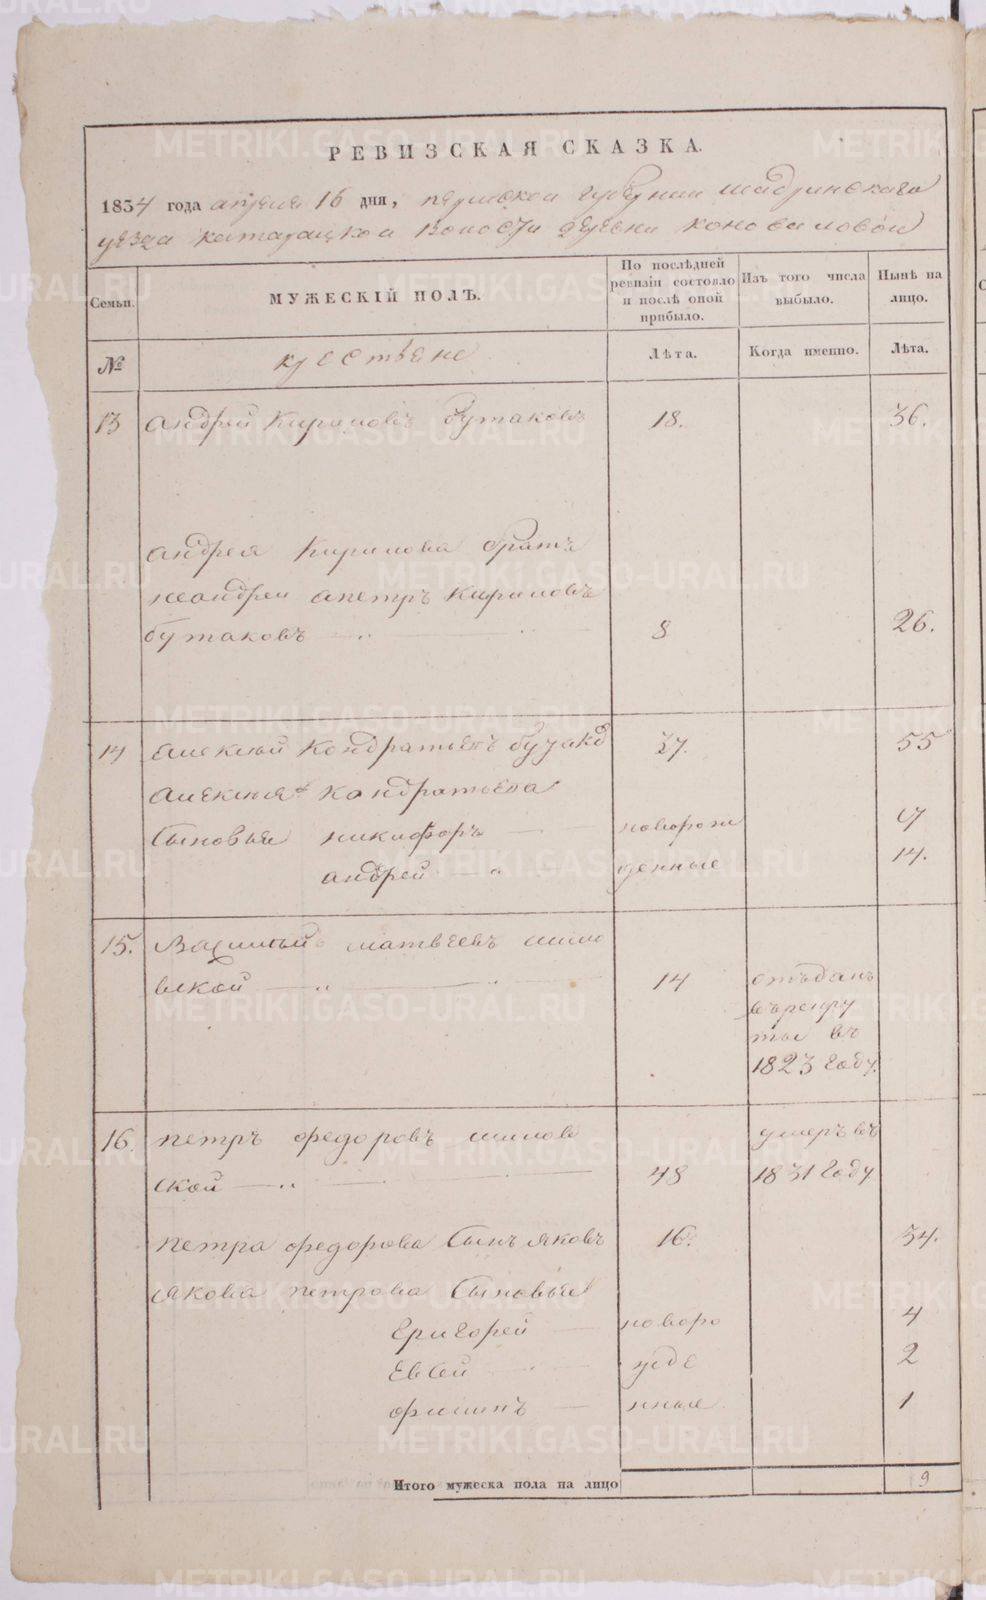 РЕВИЗСКАЯ СКАЗКА.
1834 года апреля 16 дня, пермской губернии шадринскаго
уезда катарацкой волости деревни коноваловой
Семьи.
МУЖЕСКІЙ ПОЛЪ.
По послѣдней ревизіи состояло и послѣ оной прибыло.
Изъ того числа выбыло.
Нынѣ на лицо.
№
крестьяне
Лѣта.
Когда именно.
Лѣта.
13 андрей Кириловъ бутаковъ 18. 36.
андрея Кирилова братъ
неандреи апетръ Кириловъ
бутаковъ 8 26.
14 алексий Кондратьевъ 37. 55
алексия Кандратьева
сыновья никифоръ новорож 17
андрей денные 14.
15. Василий матвеевъ шило
вской 14 отъданъ
въ рекру
ты въ
1823 году.
16. петръ федоровъ шилов умеръ въ
ской 48 1831 году
петра федорова сынъ яковъ 16. 34.
якова петрова сыновья
григорей новоро 4
евсей жде 2
филипъ нные 1
Итого мужеска пола на лицо 9
METRIKI.GASO-URAL.RU